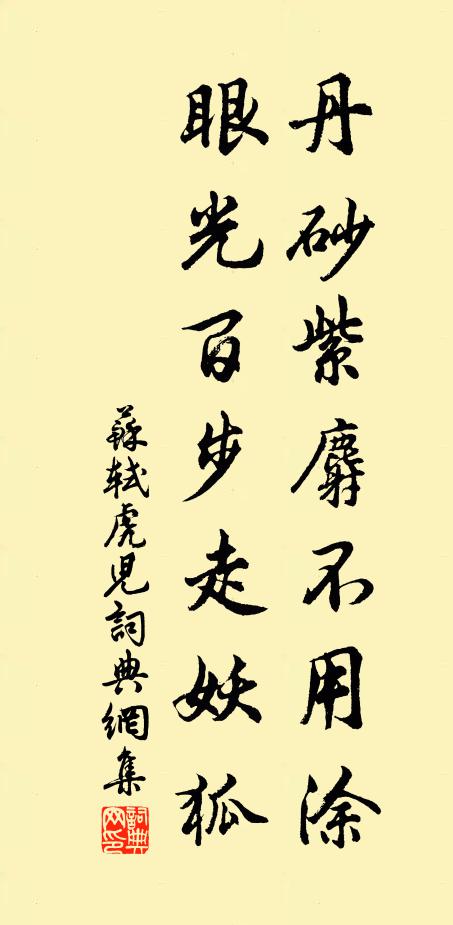 丹砂紫麝不用涂
眼光百步走妖狐
蘇軾虎児詞典網集
詞典网印